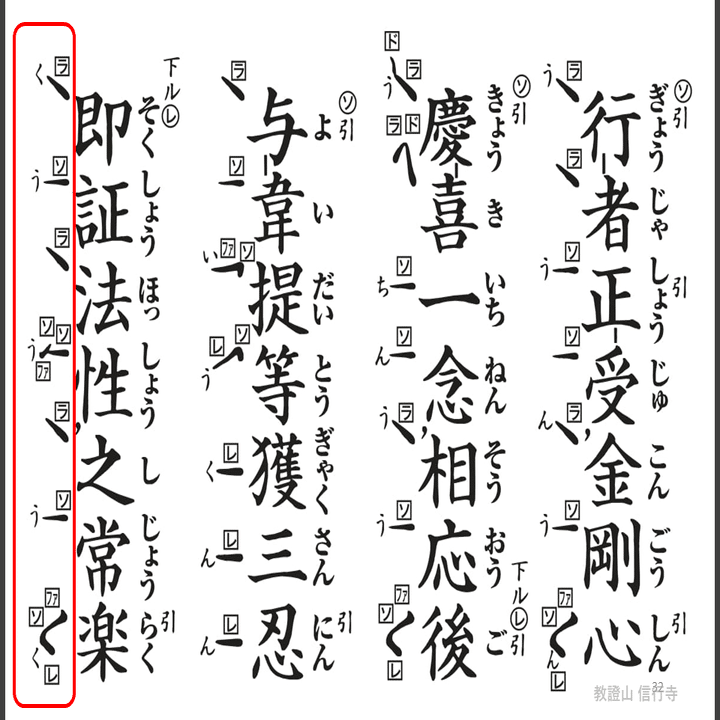 ぎょうじゃしょうじゅこんごうしん
行者正受金剛心
きょうきいちねんそうおうご
慶喜一念相応後
よいだいとうぎゃくさんにん
与韋提等獲三忍
そくしょうほっしょうしじょうらく
即証法性之常楽
32
教證山 信行寺